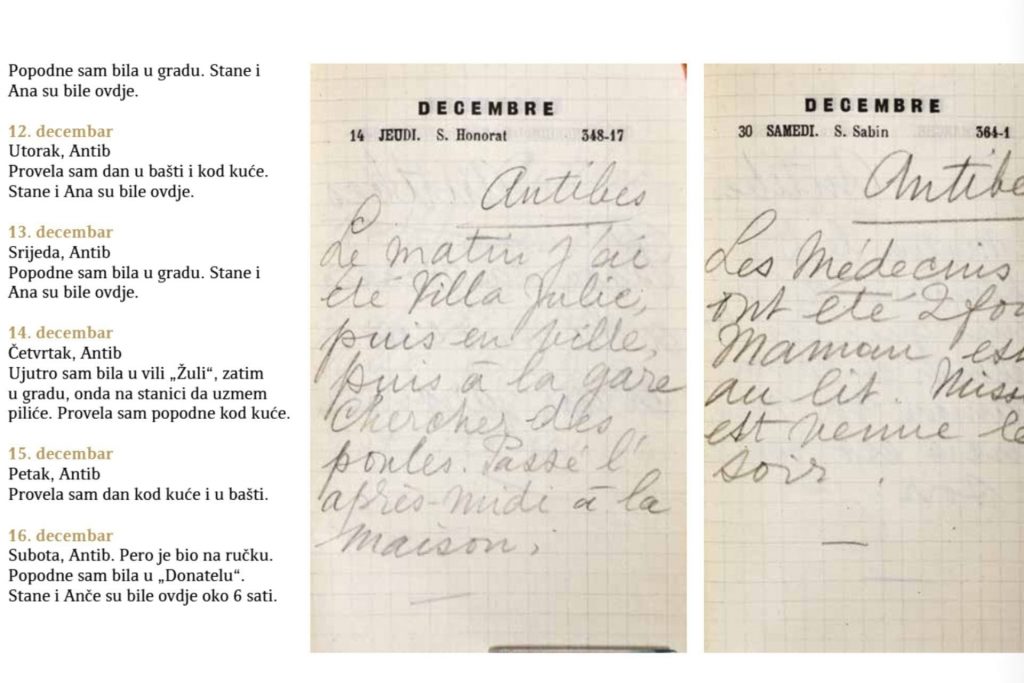 Popodne sam bila u gradu. Stane i
Ana su bile ovdje.
12. decembar
Utorak, Antib
Provela sam dan u bašti i kod kuće.
Stane i Ana su bile ovdje.
13. decembar
Srijeda, Antib
Popodne sam bila u gradu. Stane i
Ana su bile ovdje.
14. decembar
Četvrtak, Antib
Ujutro sam bila u vili „Žuli“, zatim
u gradu, onda na stanici da uzmem
piliće. Provela sam popodne kod kuće.
15. decembar
Petak, Antib
Provela sam dan kod kuće i u bašti.
16. decembar
Subota, Antib. Pero je bio na ručku.
Popodne sam bila u „Donatelu“.
Stane i Anče su bile ovdje oko 6 sati.
DECEMBRE
14 JEUDI. S. Honorat 348-17
Antibes
Le matin j'ai
été Villa Julie,
puis en ville,
puis à la gare
chercher des
poules. Passé l'
après-midi à la
maison.
DECEMBRE
30 SAMEDI. S. Sabin 364-1
Antibe
Les Médecins
ont été 2 fo
Maman es
au lit. Miss
est venue le
soir.